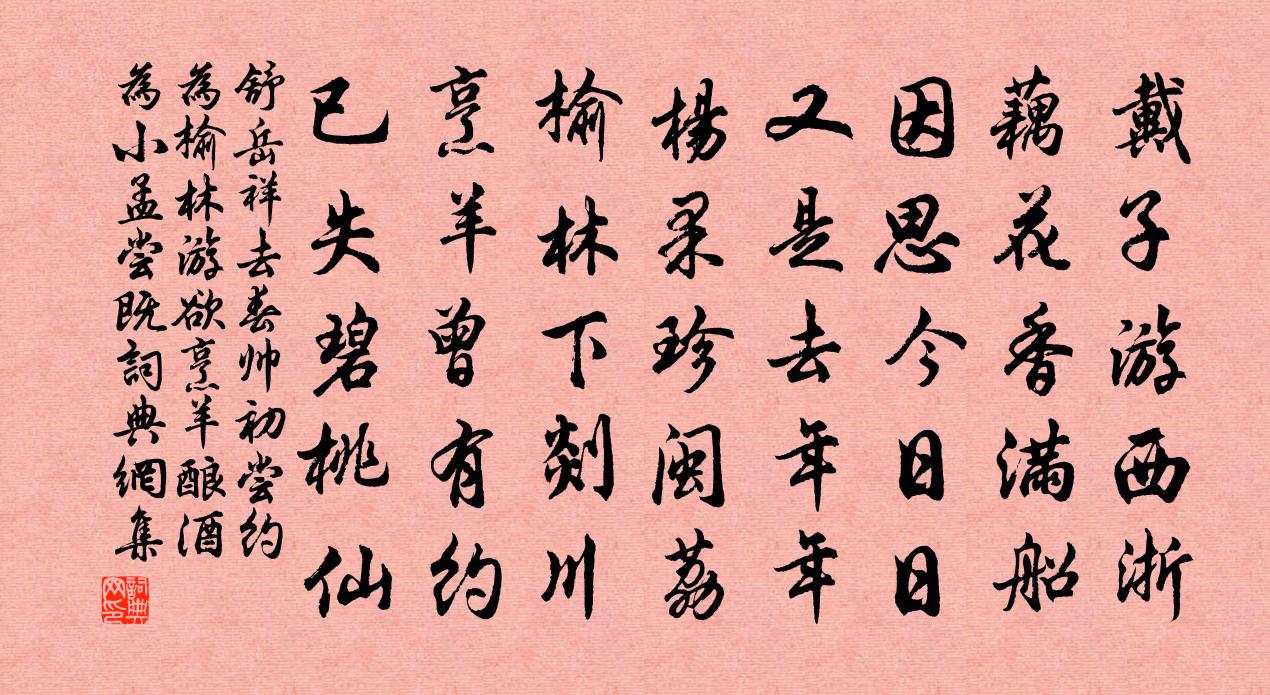 戴子游西浙
藕花香满船
因思今日日
又是去年年
楊果珍闽荔
榆林下剡川
烹羊曾有约
已失碧桃仙
舒岳祥去春帅初尝约
為榆林游欲烹羊酿酒
為小孟尝既詞典網集
詞典